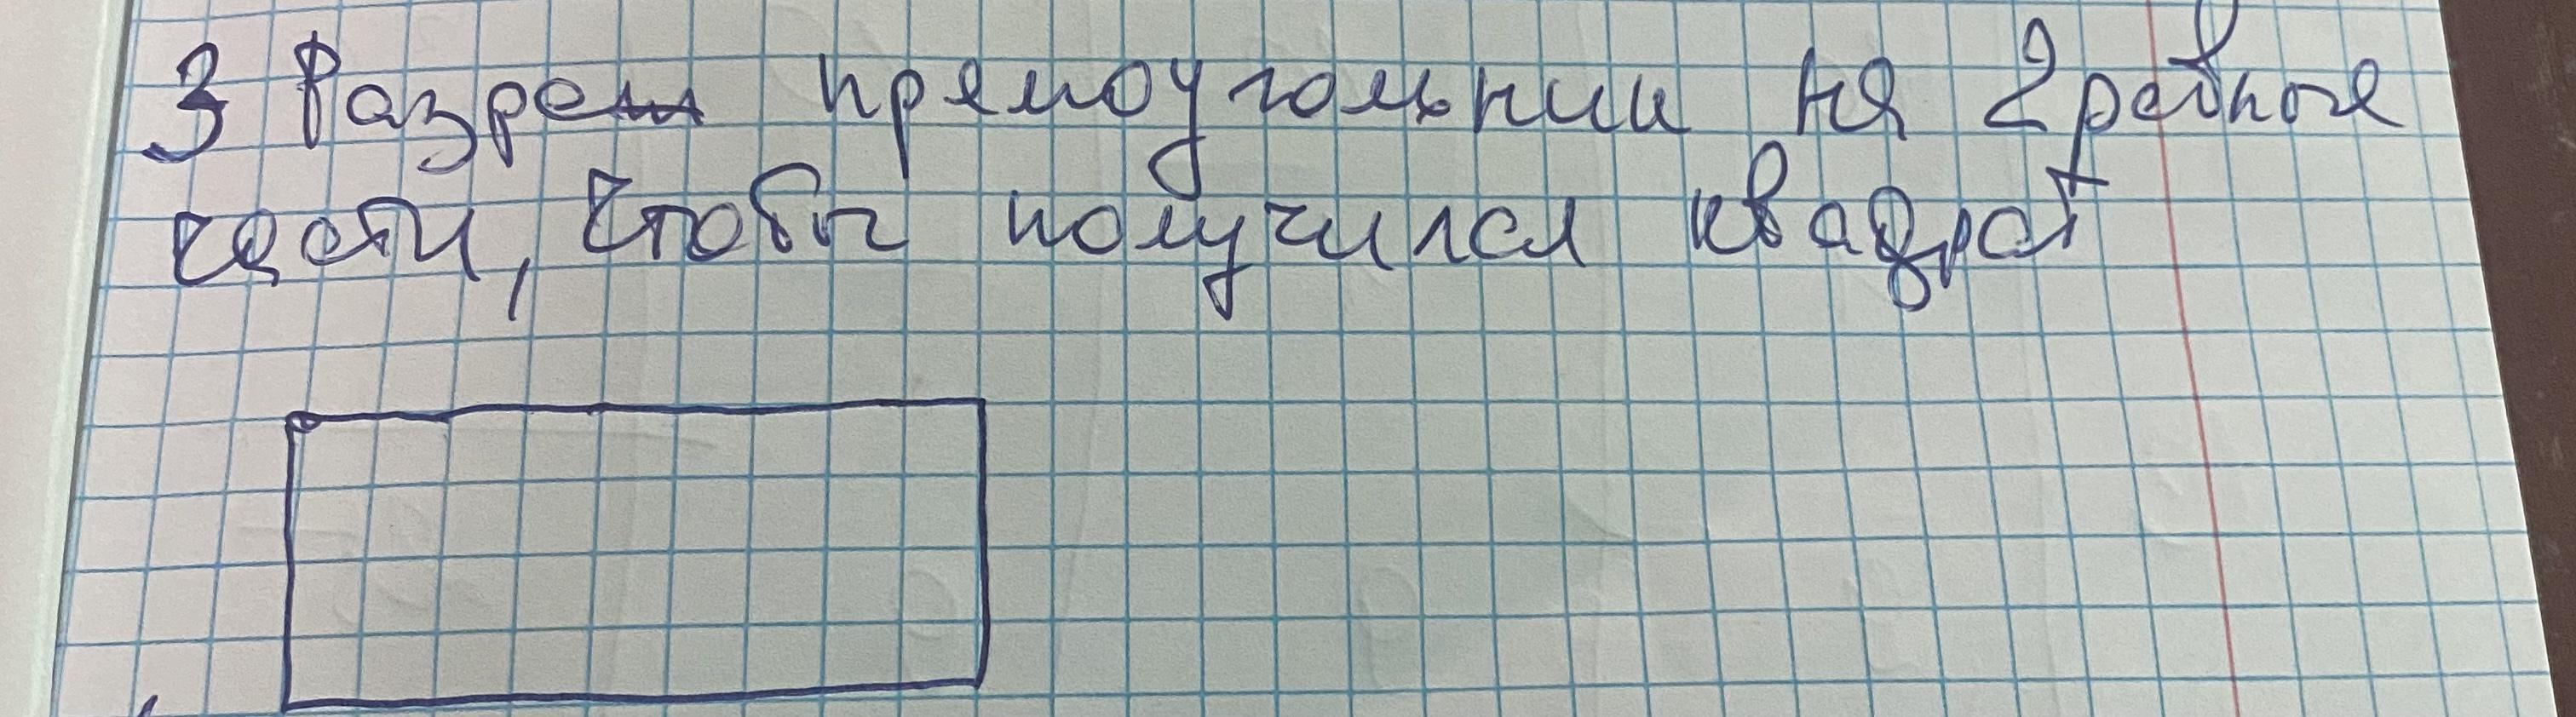 3 Разреж прямоугольник на 2 равные
части, чтобы получился квадрат